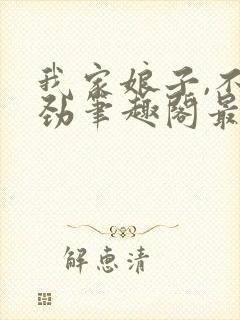 我家娘子,不
劲笔趣阁最
解惠清